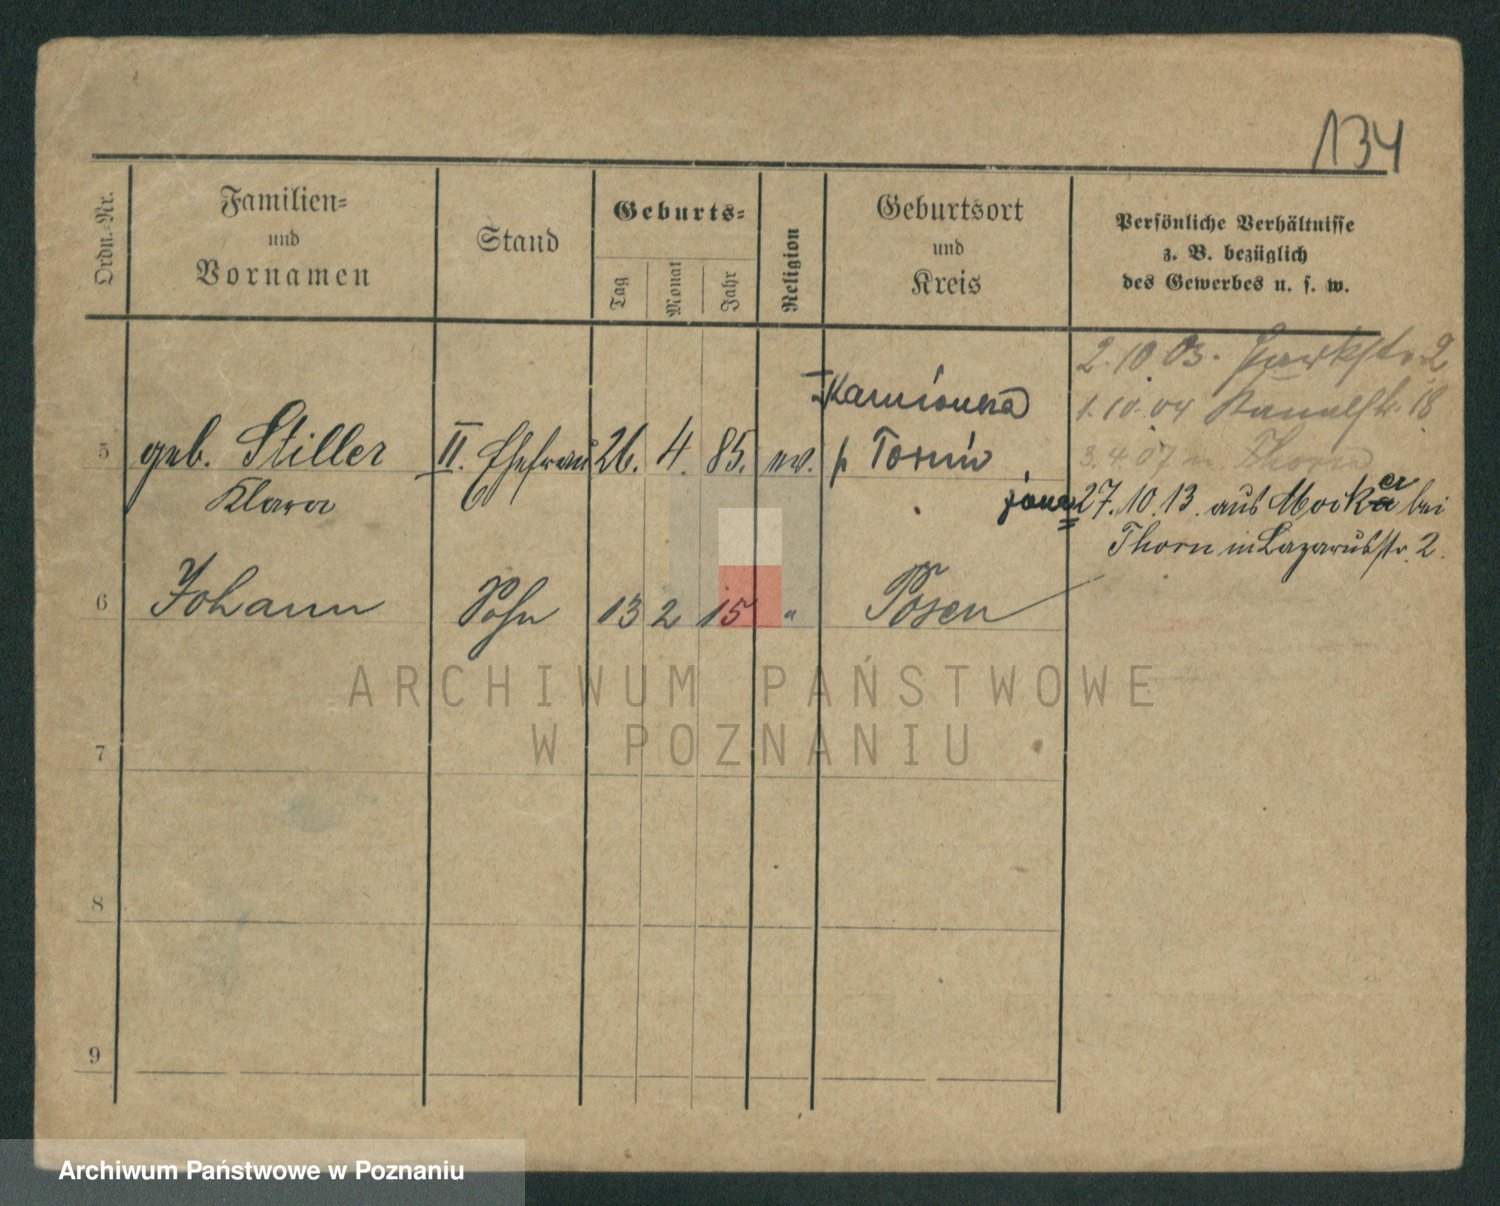 134
Ordn.-Nr.
Familien-
und
Vornamen
Stand
Geburts-
Tag
Monat
Jahr
Religion
Geburtsort
und
Kreis
Persönliche Verhältnisse
z. B. bezüglich
des Gewerbes u. s. w.
2.10.03. Parkstr. 2
1.10.04 Kanalstr. 18
3.4.07 n Thorn
5 geb. Stiller II. Ehefrau 26. 4. 85. ev. Kamionka
Klara
27.10.13. aus Mocker bei
Thorn in Lazarusstr. 2.
6 Johann Sohn 13 2 15 " Posen
7
8
9
ARCHIWUM PAŃSTWOWE
W POZNANIU
Archiwum Państwowe w Poznaniu